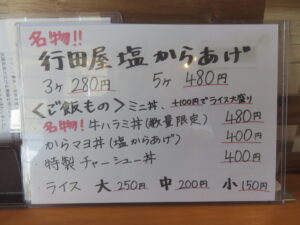 名物!!
行田屋 塩からあげ
3ヶ 280円 5ヶ 480円
<ご飯もの> ミニ丼、+100円でライス大盛り
名物! 牛ハラミ丼(数量限定) 480円
からマヨ丼(塩からあげ) 400円
特製チャーシュー丼 400円
ライス 大 250円 中 200円 小 150円